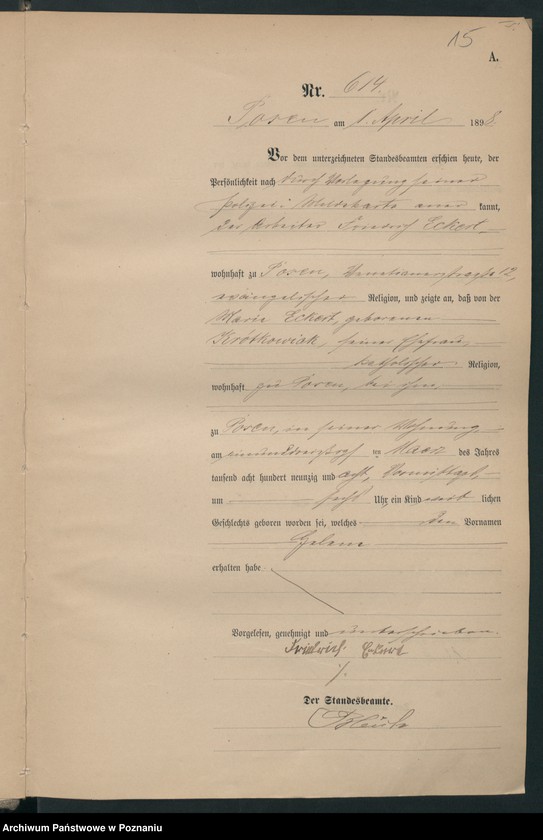 15
A.
Nr. 614.
Posen am 1. April 1898.
Vor dem unterzeichneten Standesbeamten erschien heute, der
Persönlichkeit nach durch Vorlegung seiner
polizei: Meldekarte aner kannt,
der Arbeiter Friedrich Eckert,
wohnhaft zu Posen, Venetianerstraße 12,
evangelischer Religion, und zeigte an, daß von der
Marie Eckert, geborenen
Krótkowiak, seiner Ehefrau,
katholischer Religion,
wohnhaft zu Posen, bei ihm,
zu Posen, in seiner Wohnung,
am einunddreißigsten ten Maerz des Jahres
tausend acht hundert neunzig und acht, Vormittags,
um sechs Uhr, ein Kind weib lichen
Geschlechts geboren worden sei, welches den Vornamen
Helene
erhalten habe
Vorgelesen, genehmigt und unterschrieben.
Friedrich Eckert
Der Standesbeamte.
Archiwum Państwowe w Poznaniu